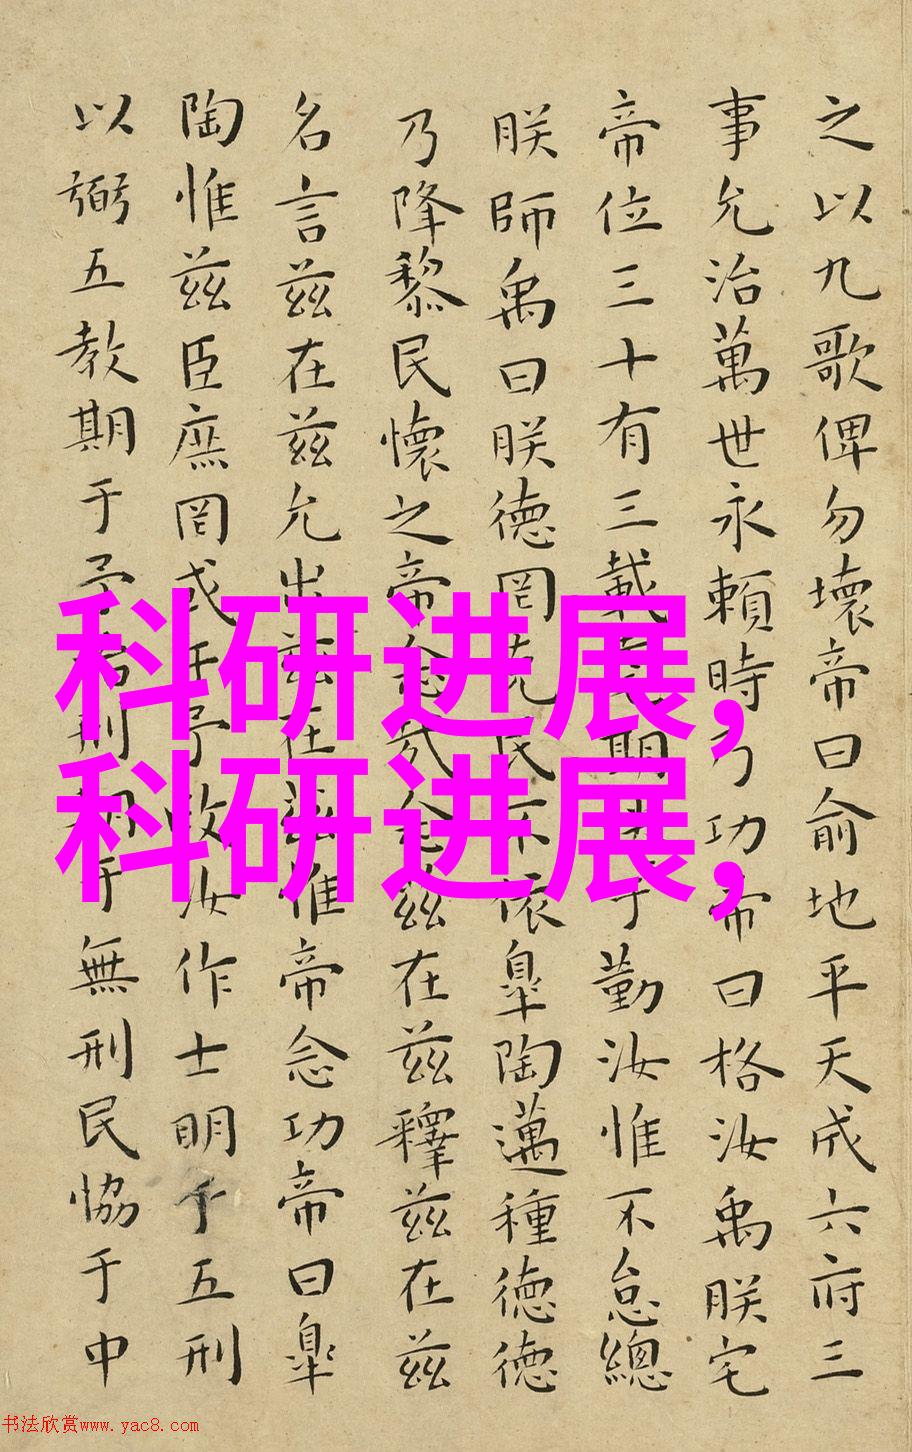 之以九歌俾勿壞帝曰俞地平天成六府三
事允治萬世永賴時乃功帝曰格汝禹朕宅
帝位三十有三載期于勤汝惟不怠總
朕師禹曰朕德罔克民不依皐陶邁種德德
乃降黎民懷之帝念哉念兹在兹釋兹在兹
名言兹在兹允出兹在兹惟帝念功帝曰皐
陶惟兹臣庶罔或干予政汝作士明于五刑
以弼五教期于予治刑期于無刑民協于中
科研进展,
科研进展,
书法欣赏www.yac8.com